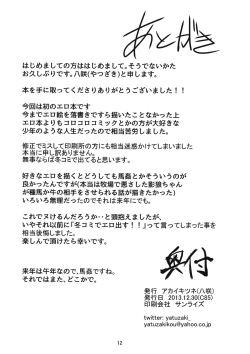 あとがき
はじめましての方ははじめまして。そうでないかた
お久しぶりです。八咲(やつざき)と申します。
本を手に取ってくださりありがとうございました！！
今回は初のエロ本です
今までエロ絵を落書きですら描いたことなかった上
エロ本よりもコロコロコミックとかの方が大好きな
少年のような人生だったので相当苦労しました。
修正でミスして印刷所の方にも相当迷惑かけてしまいました
本当に申し訳ありません。
無事ならば冬コミで出てると思います。
好きなエロを描くとどうしても馬姦とかそういうのが
良かったんですが(本当は牧場で悪さした影狼ちゃん
が種馬か牛の相手をさせられる話が描きたかった)
いろいろ無理だったのでそれは来年にでも。
これでヌけるんだろうか…と頭抱えましたが、
いやそれ以前に「冬コミでエロ出す！！」って言てしまった事を
相当後悔しました。
楽しんで頂けたら幸いです。
来年は午年なので、馬姦ですね。
それではまた、どこかで。
奥付
発行 アカイキツネ(八咲)
発行日 2013.12.30(C85)
印刷会社 サンライズ
twitter: yatuzaki_
yatuzakikou@yahoo.co.jp
12